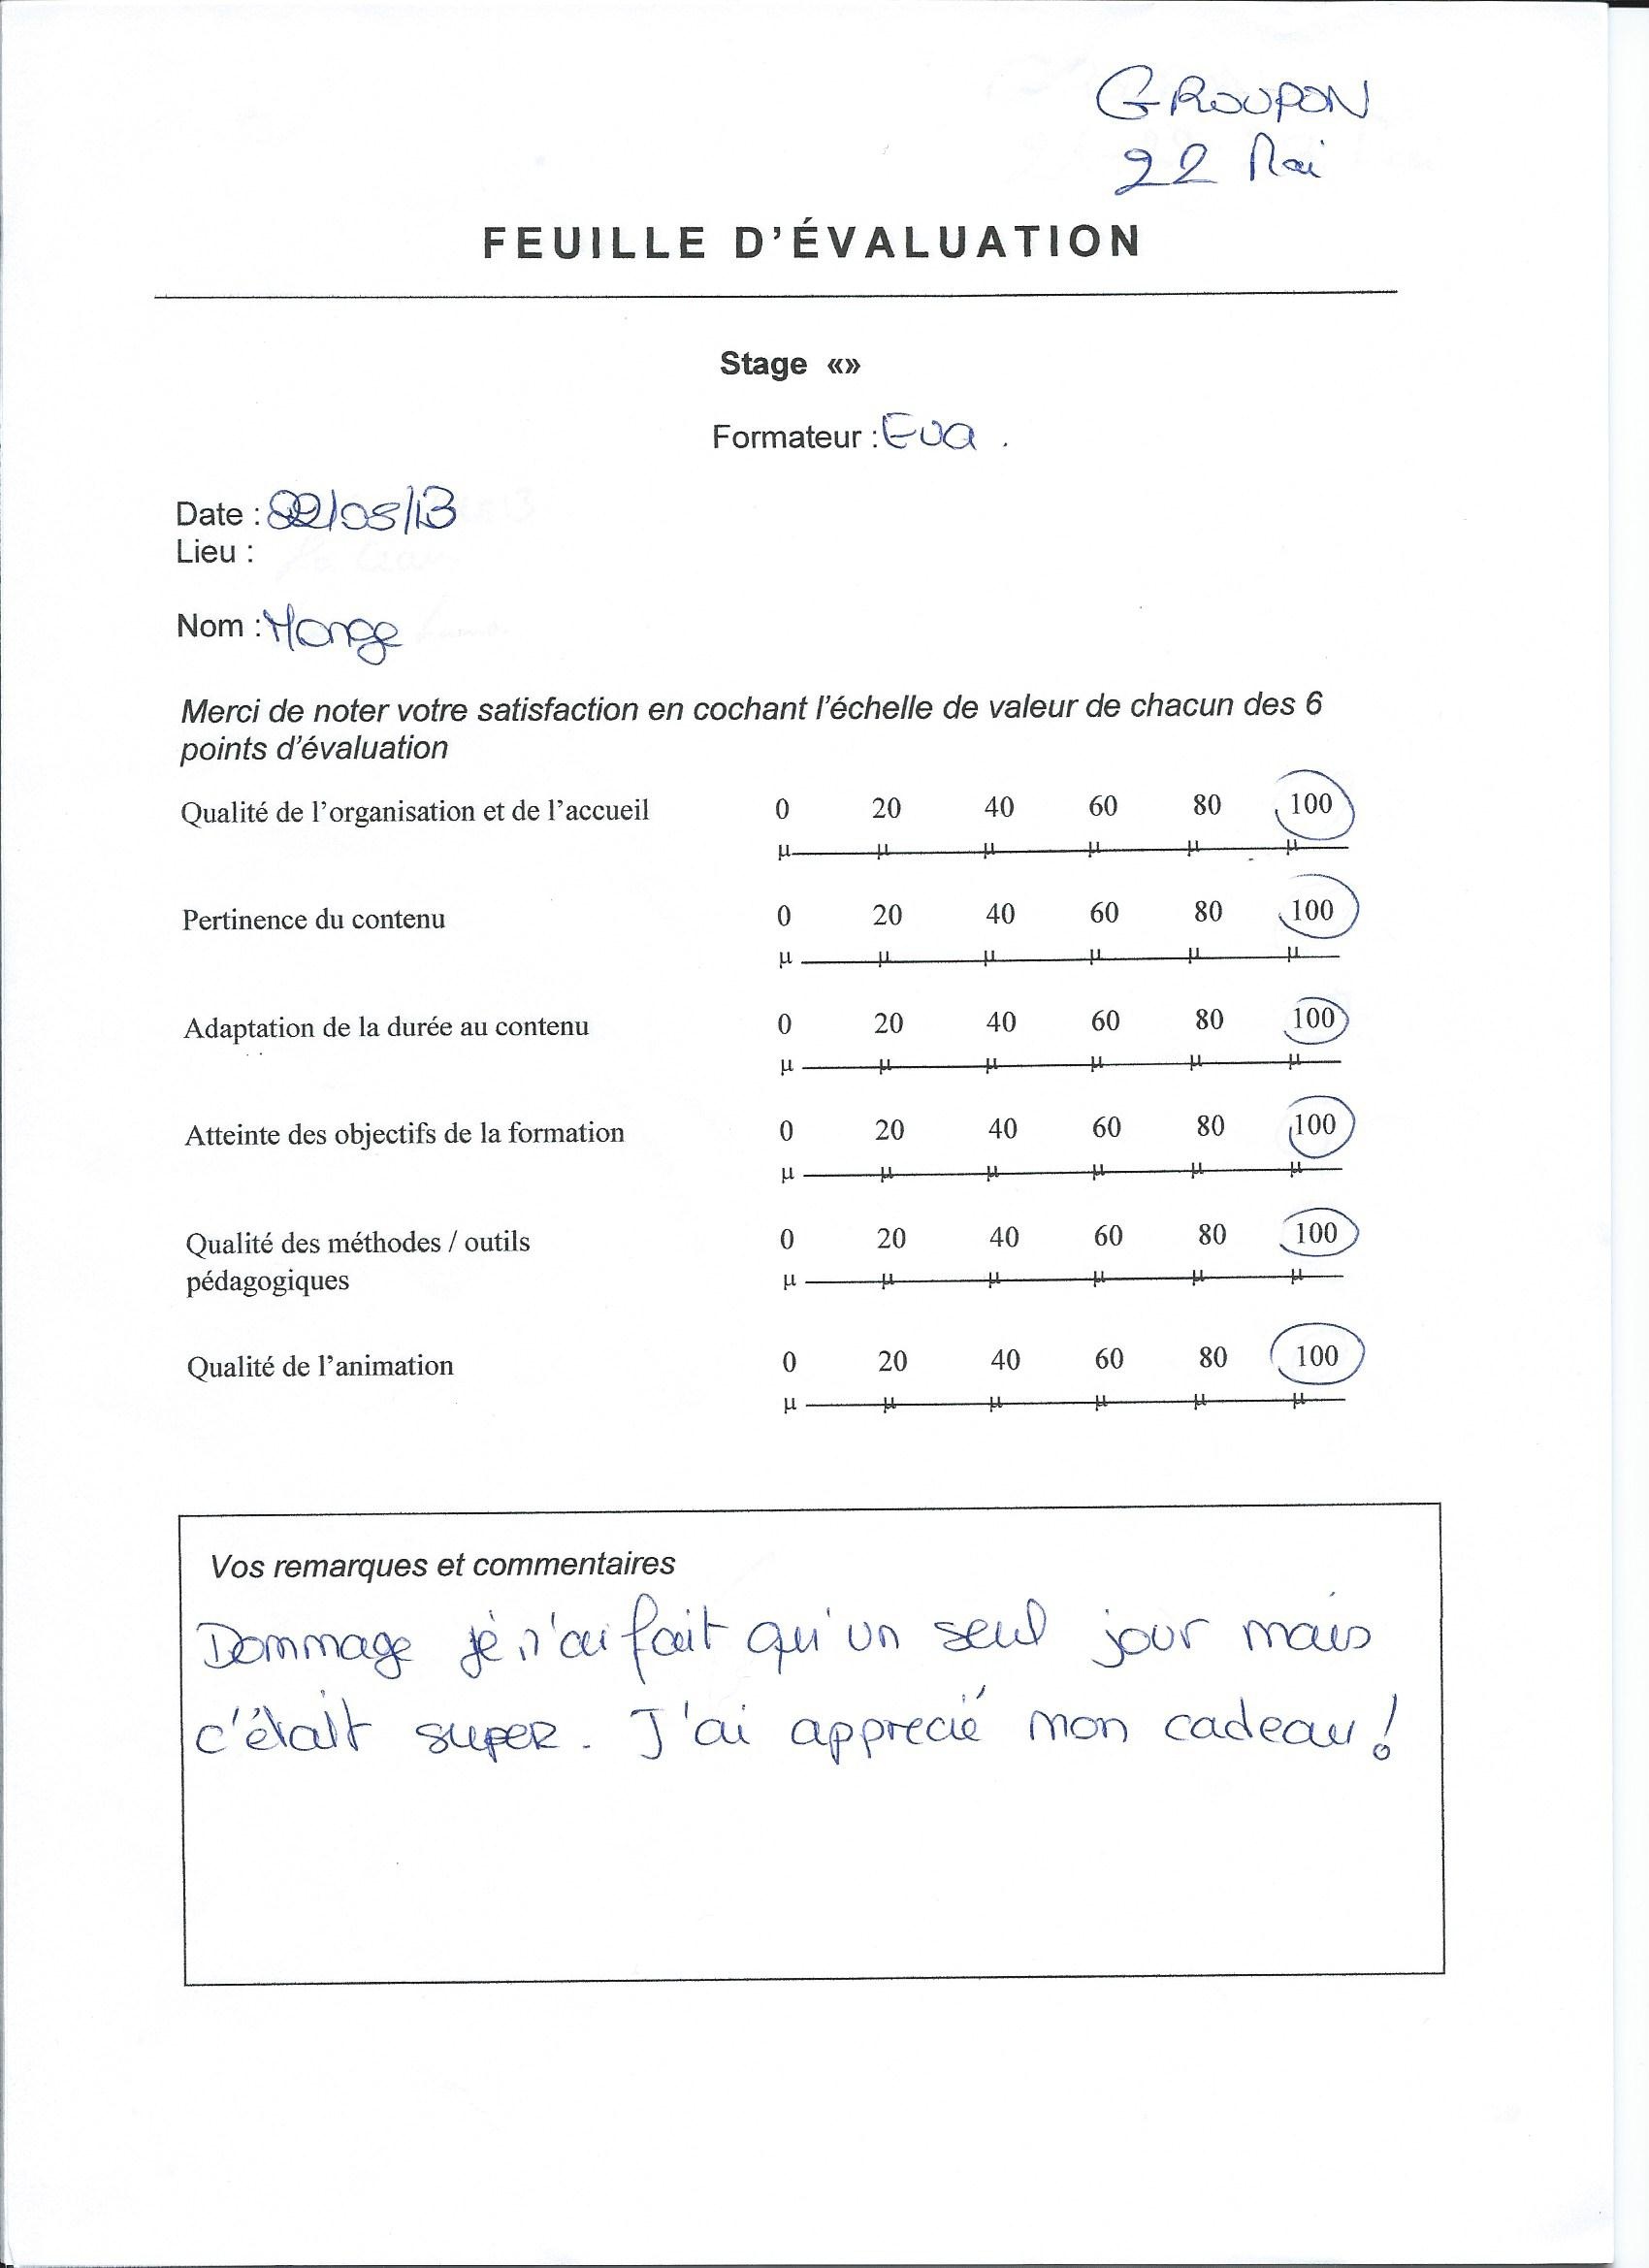 GROUPON
22 Mai
FEUILLE D'ÉVALUATION
Stage «»
Formateur : Eva .
Date : 22/05/13
Lieu :
Nom : Monge
Merci de noter votre satisfaction en cochant l'échelle de valeur de chacun des 6
points d'évaluation
Qualité de l'organisation et de l'accueil 0 20 40 60 80 100
µ µ µ µ µ µ
Pertinence du contenu 0 20 40 60 80 100
µ µ µ µ µ µ
Adaptation de la durée au contenu 0 20 40 60 80 100
µ µ µ µ µ µ
Atteinte des objectifs de la formation 0 20 40 60 80 100
µ µ µ µ µ µ
Qualité des méthodes / outils 0 20 40 60 80 100
pédagogiques µ µ µ µ µ µ
Qualité de l'animation 0 20 40 60 80 100
µ µ µ µ µ µ
Vos remarques et commentaires
Dommage je n'ai fait qu'un seul jour mais
c'était super. J'ai apprecié mon cadeau !